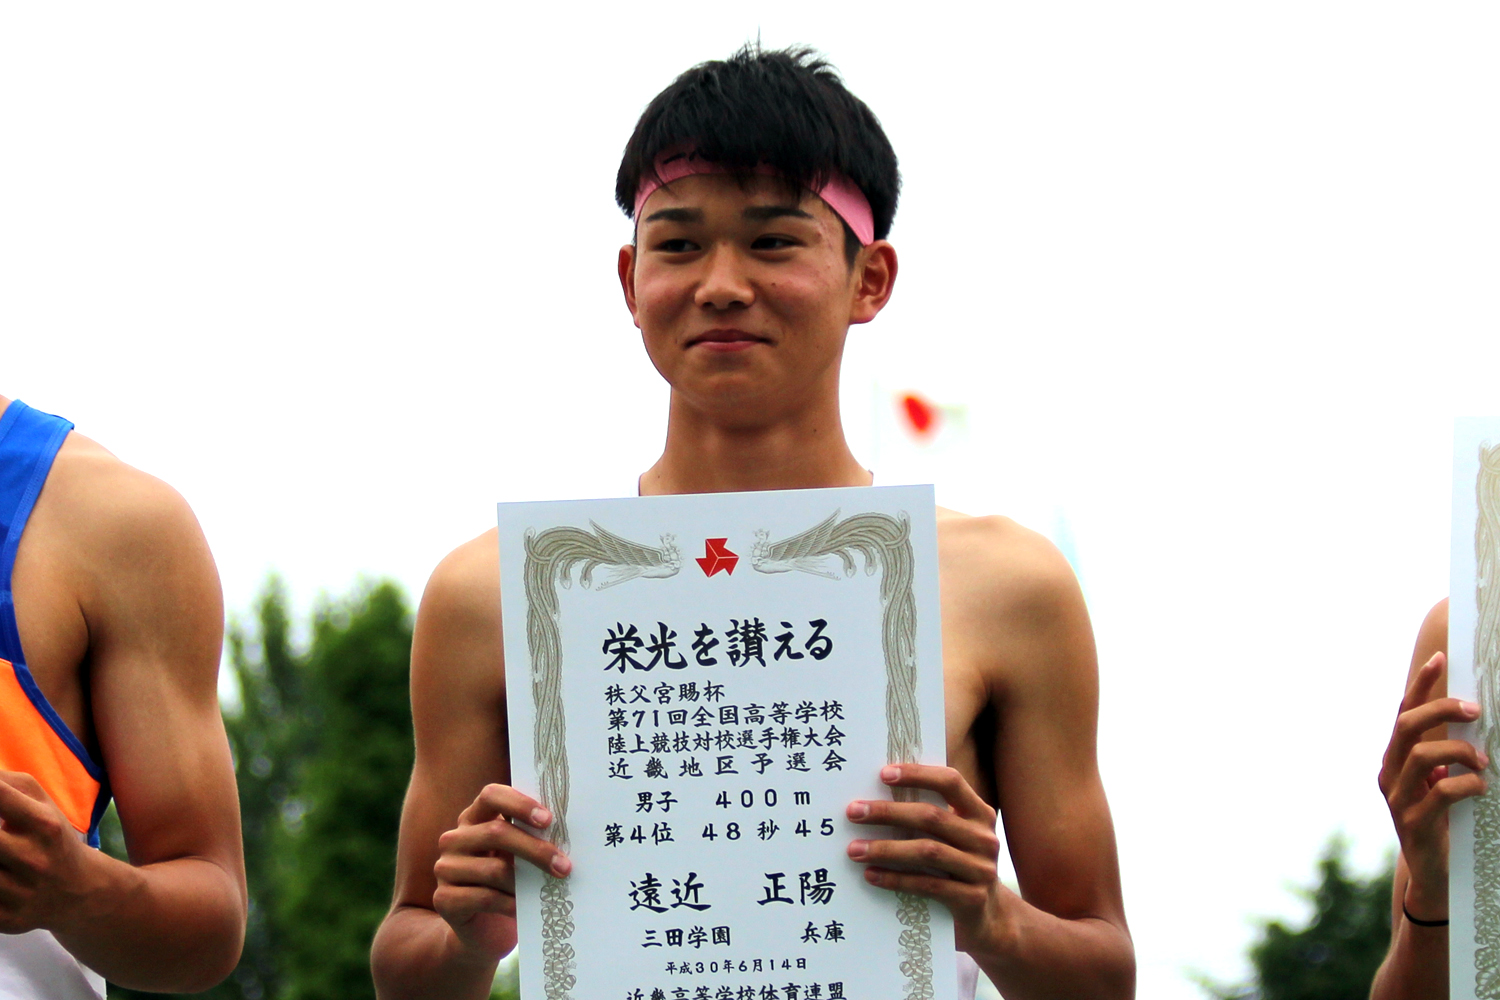 栄光を讃える
秩父宮賜杯
第71回全国高等学校
陸上競技対校選手権大会
近畿地区予選会
男子 400m
第4位 48秒45
遠近 正陽
三田学園 兵庫
平成30年6月14日
近畿高等学校体育連盟